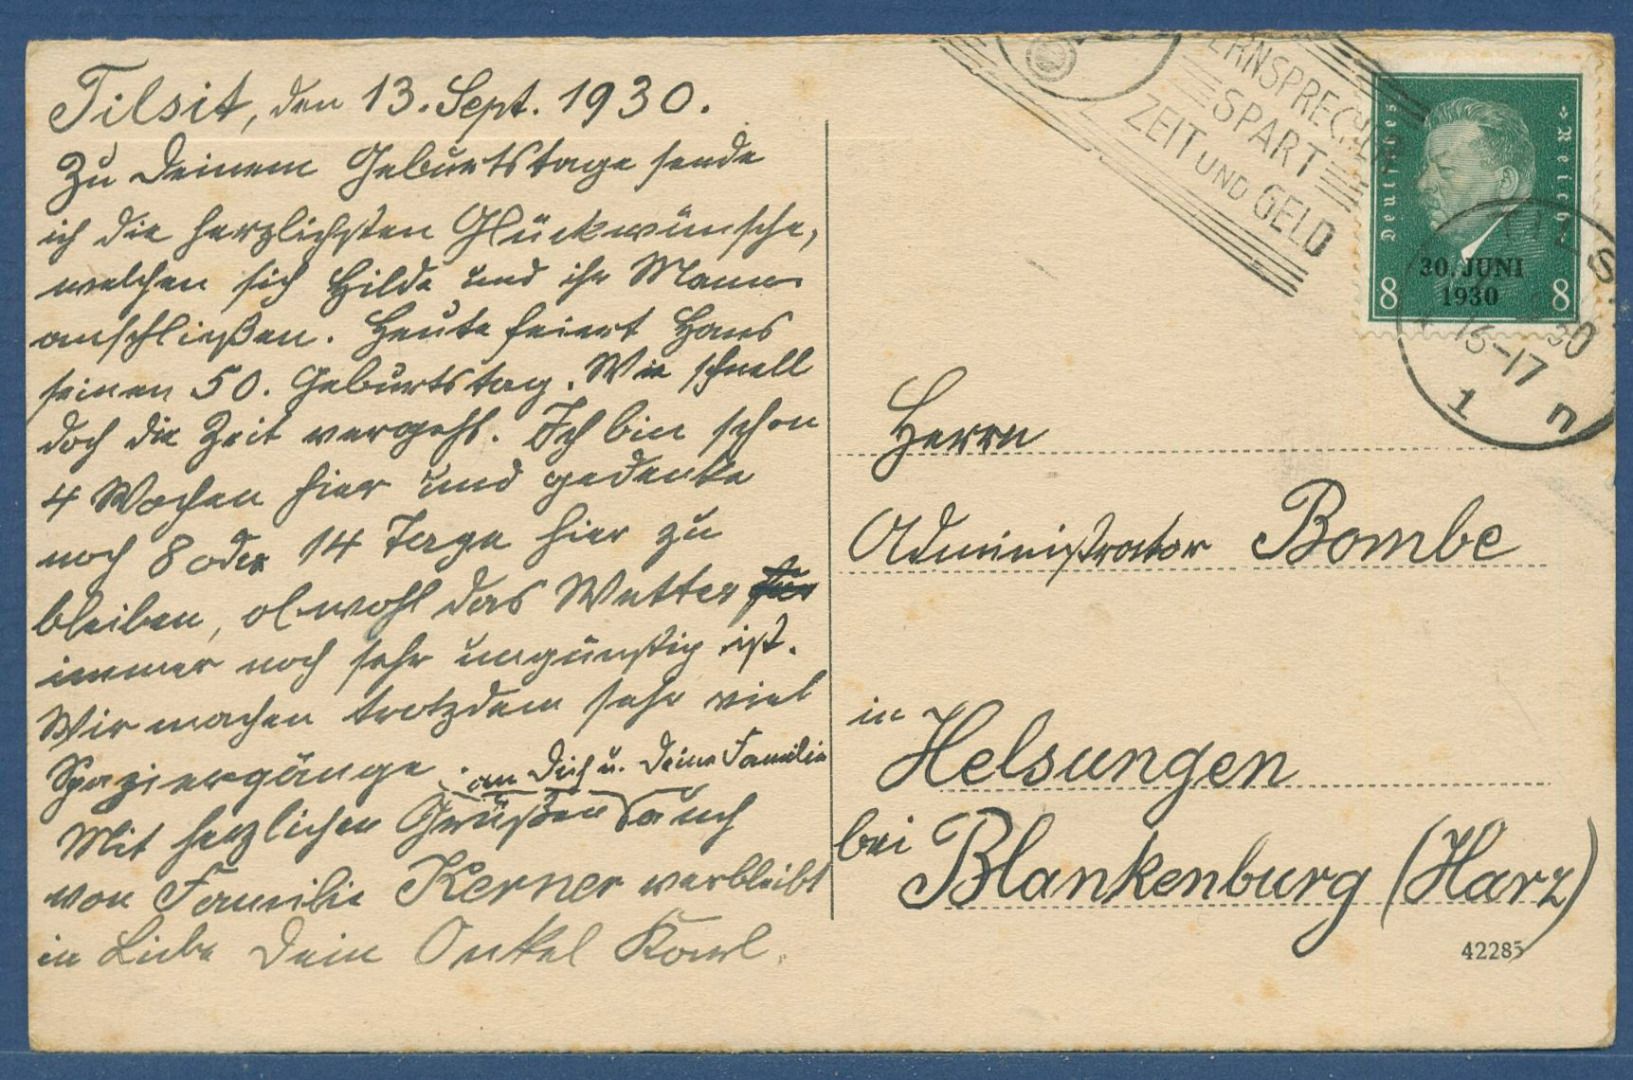 Tilsit, den 13. Sept. 1930.
Zu Deinem Geburtstage sende
ich die herzlichsten Glückwünsche,
welchen sich Hilde und ihr Mann
anschließen. Heute feiert Hans
seinen 50. Geburtstag. Wie schnell
doch die Zeit vergeht. Ich bin schon
4 Wochen hier und gedenke
noch 8 oder 14 Tage hier zu
bleiben, obwohl das Wetter
immer noch sehr ungünstig ist.
Wir machen trotzdem sehr viel
Spaziergänge.
an Dich u. Deine Familie
Mit herzlichen Grüßen auch
von Familie Kerner verbleibt
in Liebe Dein Onkel Karl.
ERNSPRECHEN
SPART
ZEIT UND GELD
Deutsches Reich
30. JUNI
1930
8 8
S
30
16-17
1 n
Herrn
Administrator Bombe
in
Helsungen
bei
Blankenburg (Harz)
42285